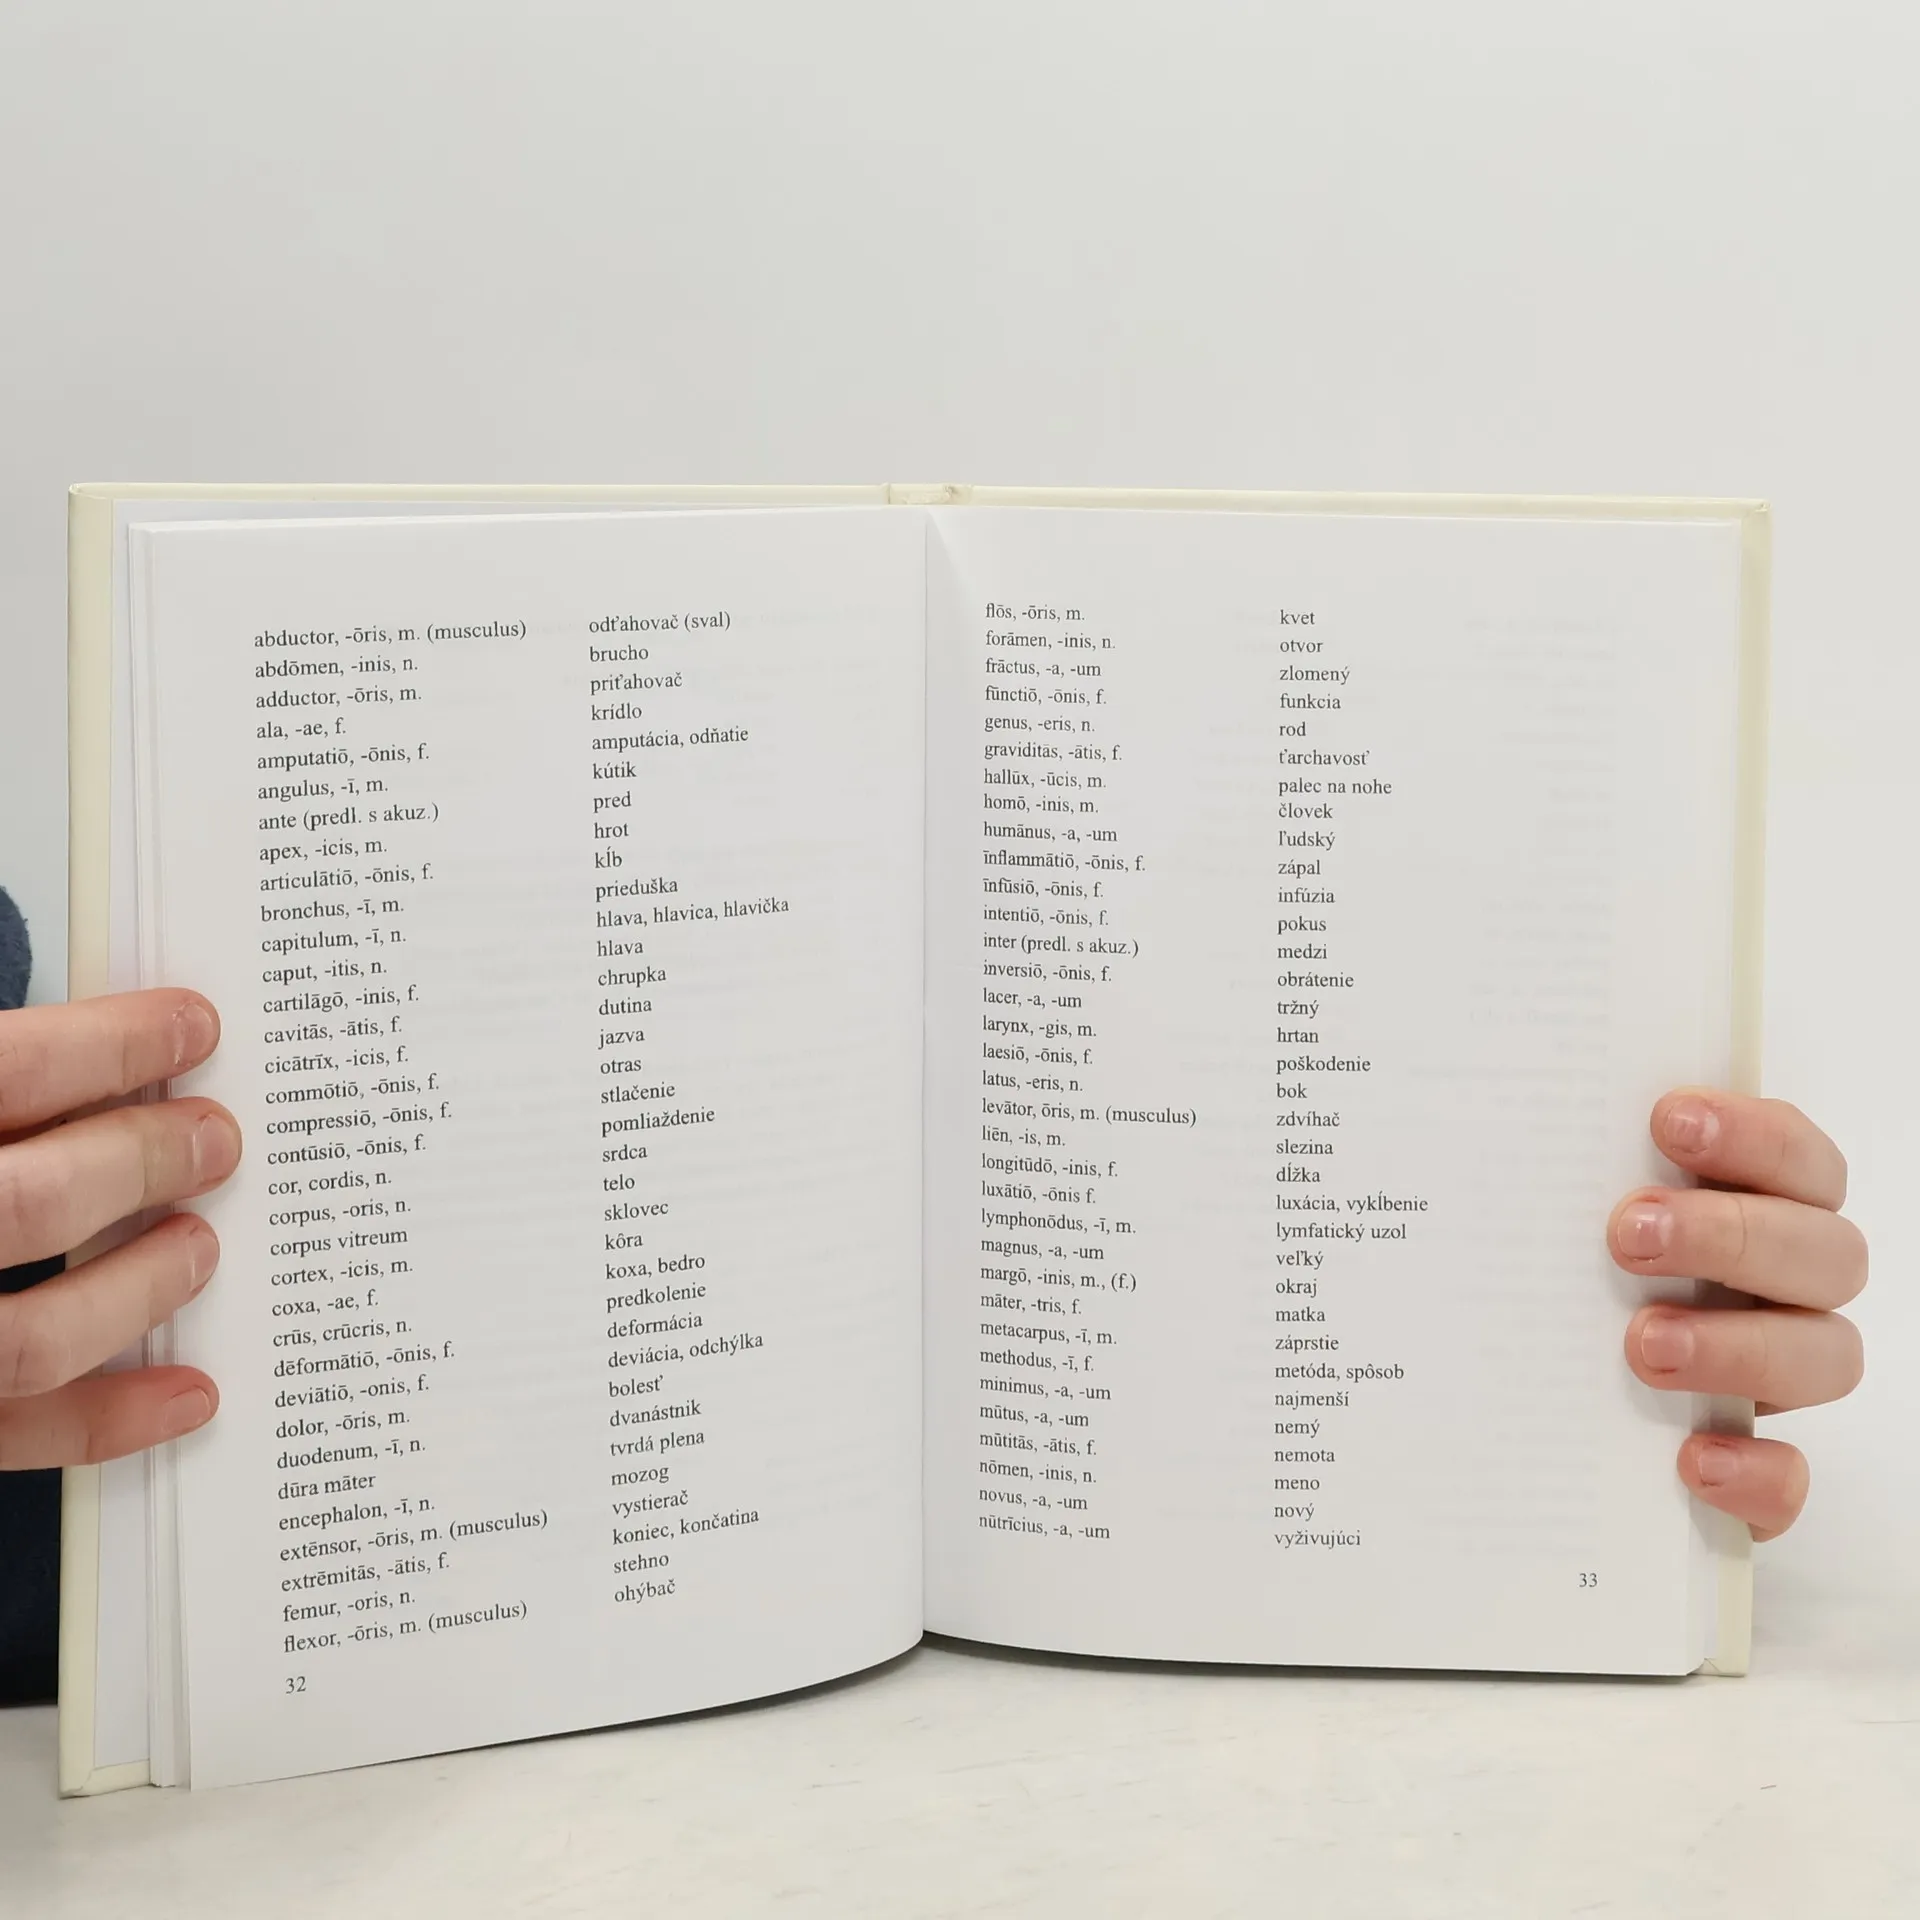 abductor, -ōris, m. (musculus) odťahovač (sval)
abdōmen, -inis, n. brucho
adductor, -ōris, m. priťahovač
ala, -ae, f. krídlo
amputatiō, -ōnis, f. amputácia, odňatie
angulus, -ī, m. kútik
ante (predl. s akuz.) pred
apex, -icis, m. hrot
articulātiō, -ōnis, f. kĺb
bronchus, -ī, m. prieduška
capitulum, -ī, n. hlava, hlavica, hlavička
caput, -itis, n. hlava
cartilāgō, -inis, f. chrupka
cavitās, -ātis, f. dutina
cicātrīx, -icis, f. jazva
commōtiō, -ōnis, f. otras
compressiō, -ōnis, f. stlačenie
contūsiō, -ōnis, f. pomliaždenie
cor, cordis, n. srdca
corpus, -oris, n. telo
corpus vitreum sklovec
cortex, -icis, m. kôra
coxa, -ae, f. koxa, bedro
crūs, crūcris, n. predkolenie
dēformātiō, -ōnis, f. deformácia
deviātiō, -onis, f. deviácia, odchýlka
dolor, -ōris, m. bolesť
duodenum, -ī, n. dvanástnik
dūra māter tvrdá plena
encephalon, -ī, n. mozog
extēnsor, -ōris, m. (musculus) vystierač
extrēmitās, -ātis, f. koniec, končatina
femur, -oris, n. stehno
flexor, -ōris, m. (musculus) ohýbač
32
flōs, -ōris, m. kvet
forāmen, -inis, n. otvor
frāctus, -a, -um zlomený
fūnctiō, -ōnis, f. funkcia
genus, -eris, n. rod
graviditās, -ātis, f. ťarchavosť
hallūx, -ūcis, m. palec na nohe
homō, -inis, m. človek
humānus, -a, -um ľudský
īnflammātiō, -ōnis, f. zápal
īnfūsiō, -ōnis, f. infúzia
intentiō, -ōnis, f. pokus
inter (predl. s akuz.) medzi
inversiō, -ōnis, f. obrátenie
lacer, -a, -um tržný
larynx, -gis, m. hrtan
laesiō, -ōnis, f. poškodenie
latus, -eris, n. bok
levātor, ōris, m. (musculus) zdvíhač
liēn, -is, m. slezina
longitūdō, -inis, f. dĺžka
luxātiō, -ōnis f. luxácia, vykĺbenie
lymphonōdus, -ī, m. lymfatický uzol
magnus, -a, -um veľký
margō, -inis, m., (f.) okraj
māter, -tris, f. matka
metacarpus, -ī, m. záprstie
methodus, -ī, f. metóda, spôsob
minimus, -a, -um najmenší
mūtus, -a, -um nemý
mūtitās, -ātis, f. nemota
nōmen, -inis, n. meno
novus, -a, -um nový
nūtrīcius, -a, -um vyživujúci
33